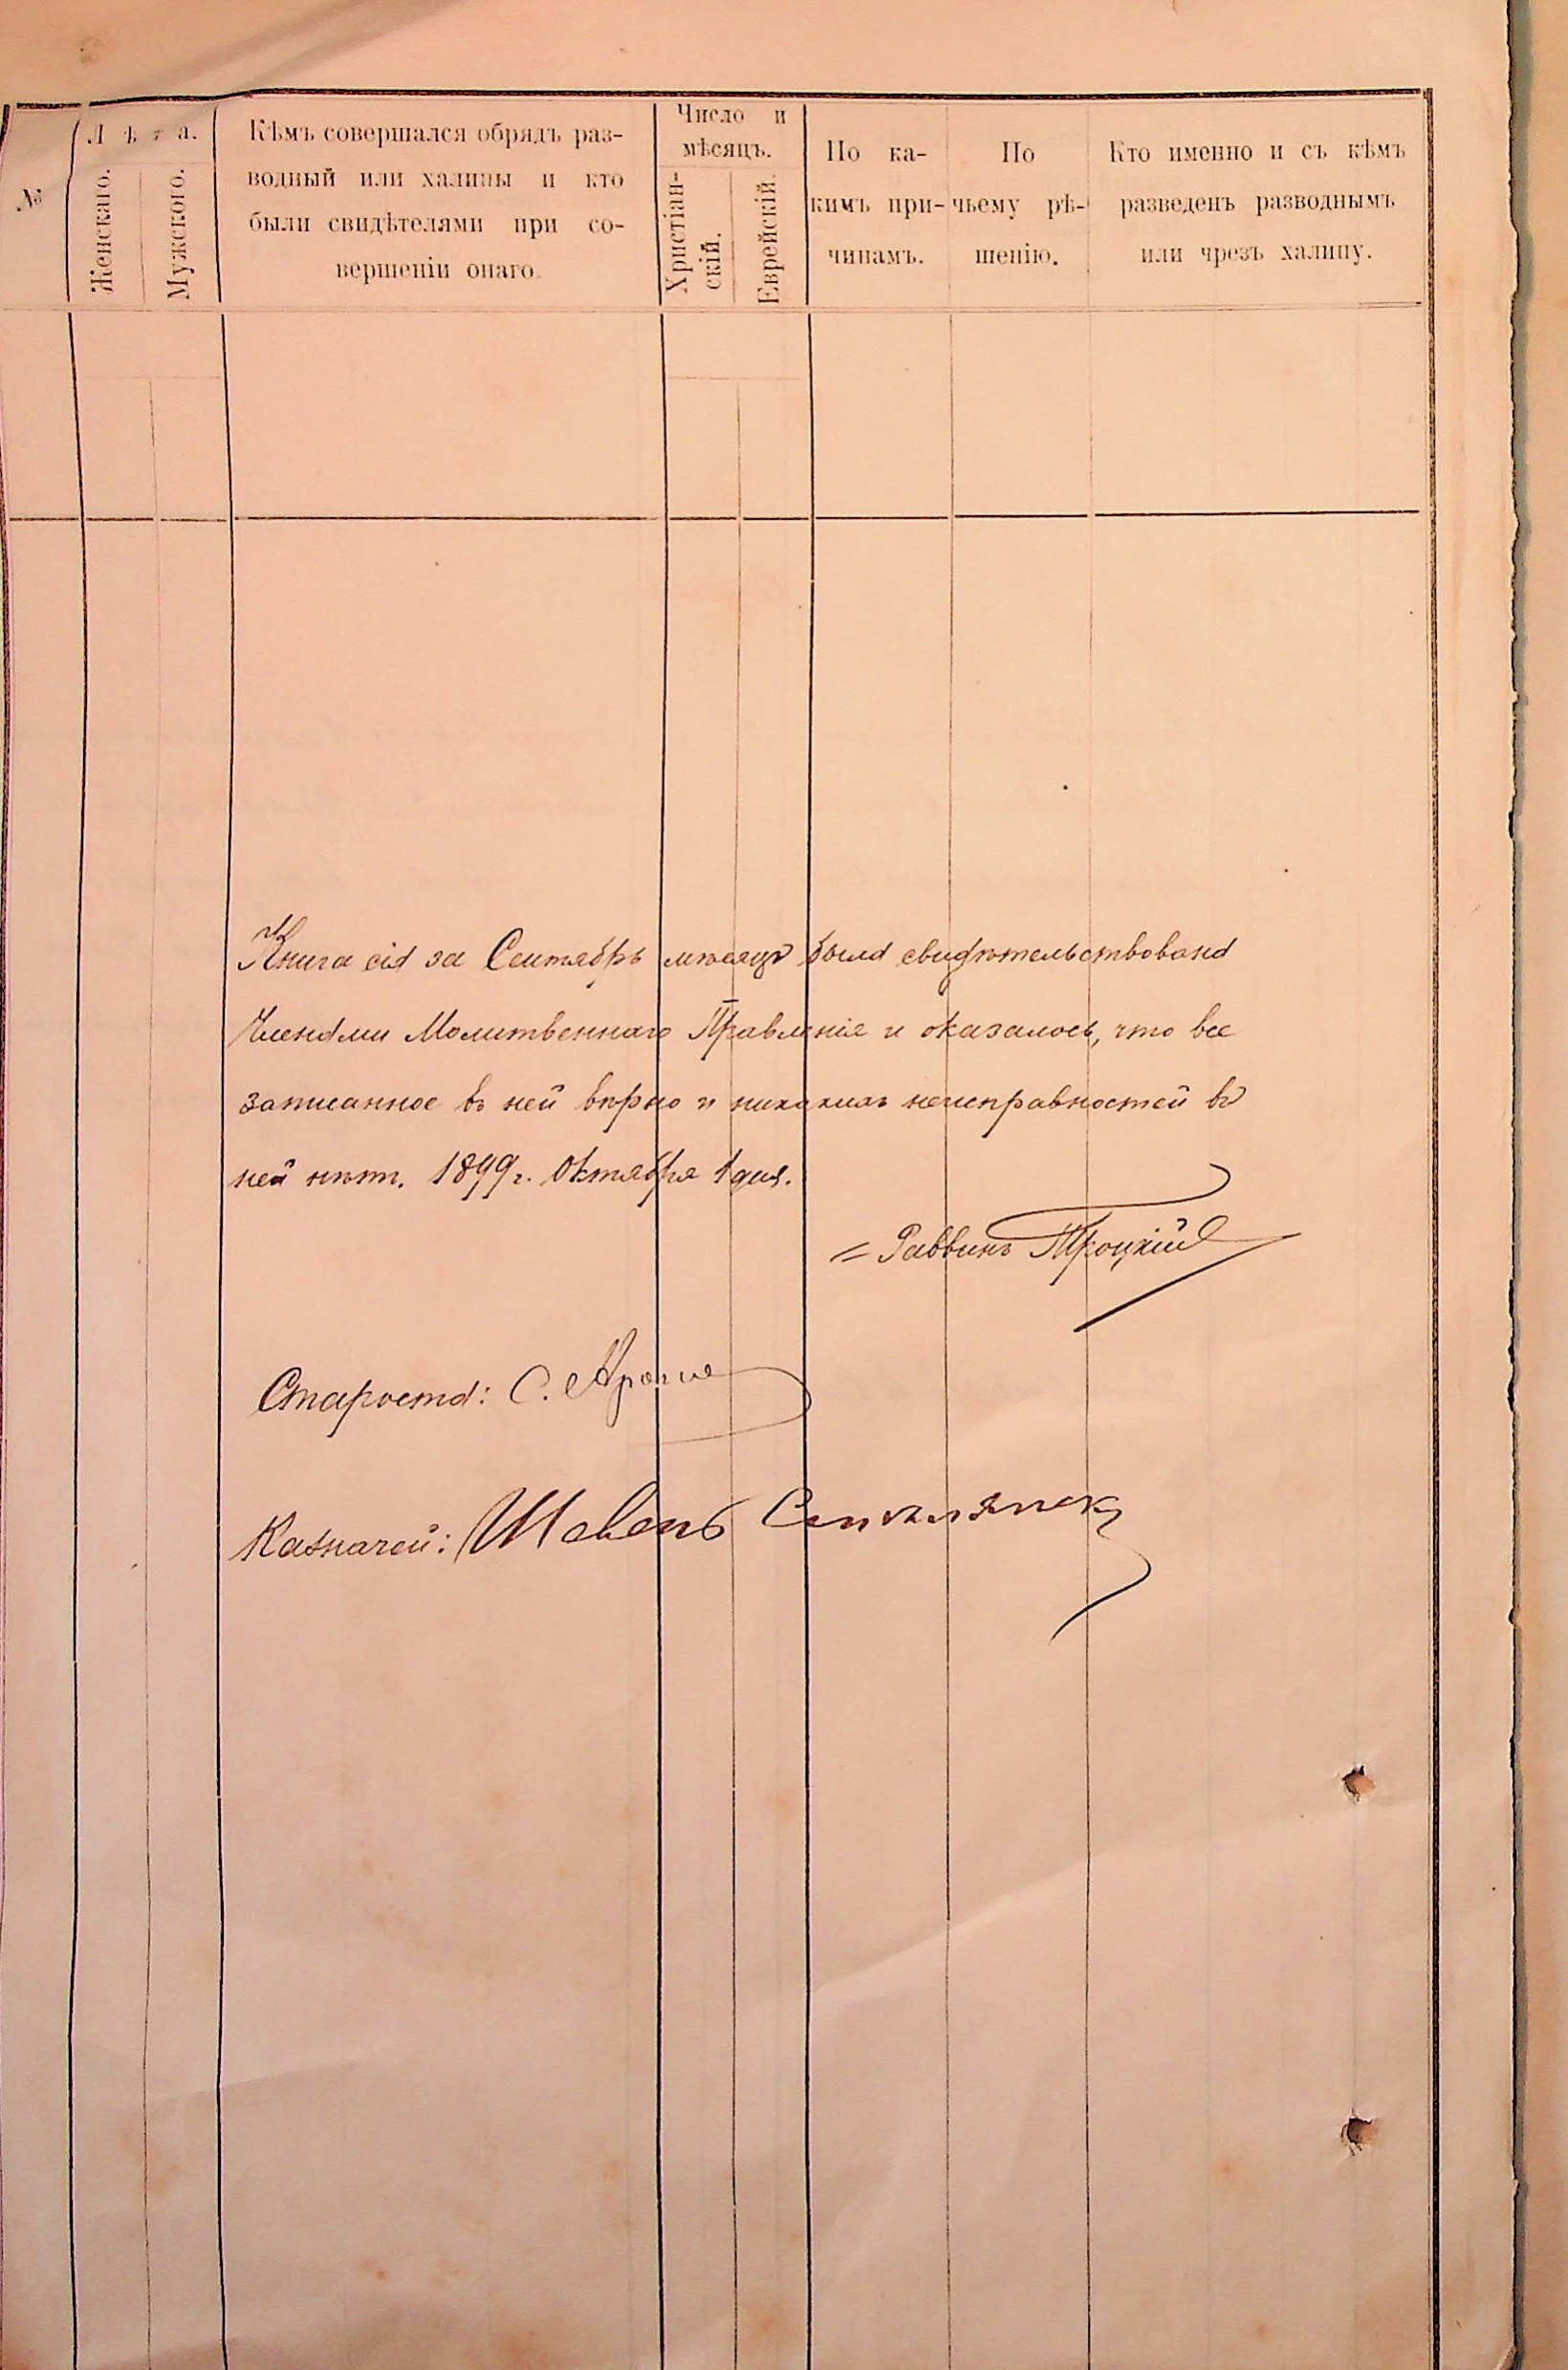 №
Лѣта.
Женскаго.
Мужского.
Кѣмъ совершался обрядъ раз-
водный или халицы и кто
были свидѣтелями при со-
вершеніи онаго.
Число и
мѣсяцъ.
Христіан-
скій.
Еврейскій.
По ка-
кимъ при-
чинамъ.
По
чьему рѣ-
шенію.
Кто именно и съ кѣмъ
разведенъ разводнымъ
или чрезъ халицу.
Книга сія за Сентябрь мѣсяцъ была свидѣтельствована
Членами Молитвеннаго Правленія и оказалось, что все
записанное въ ней вѣрно и никакихъ неисправностей въ
ней нѣтъ. 1899 г. Октября 1 дня.
= Раввинъ Троцкій
Староста: С.
Казначей: